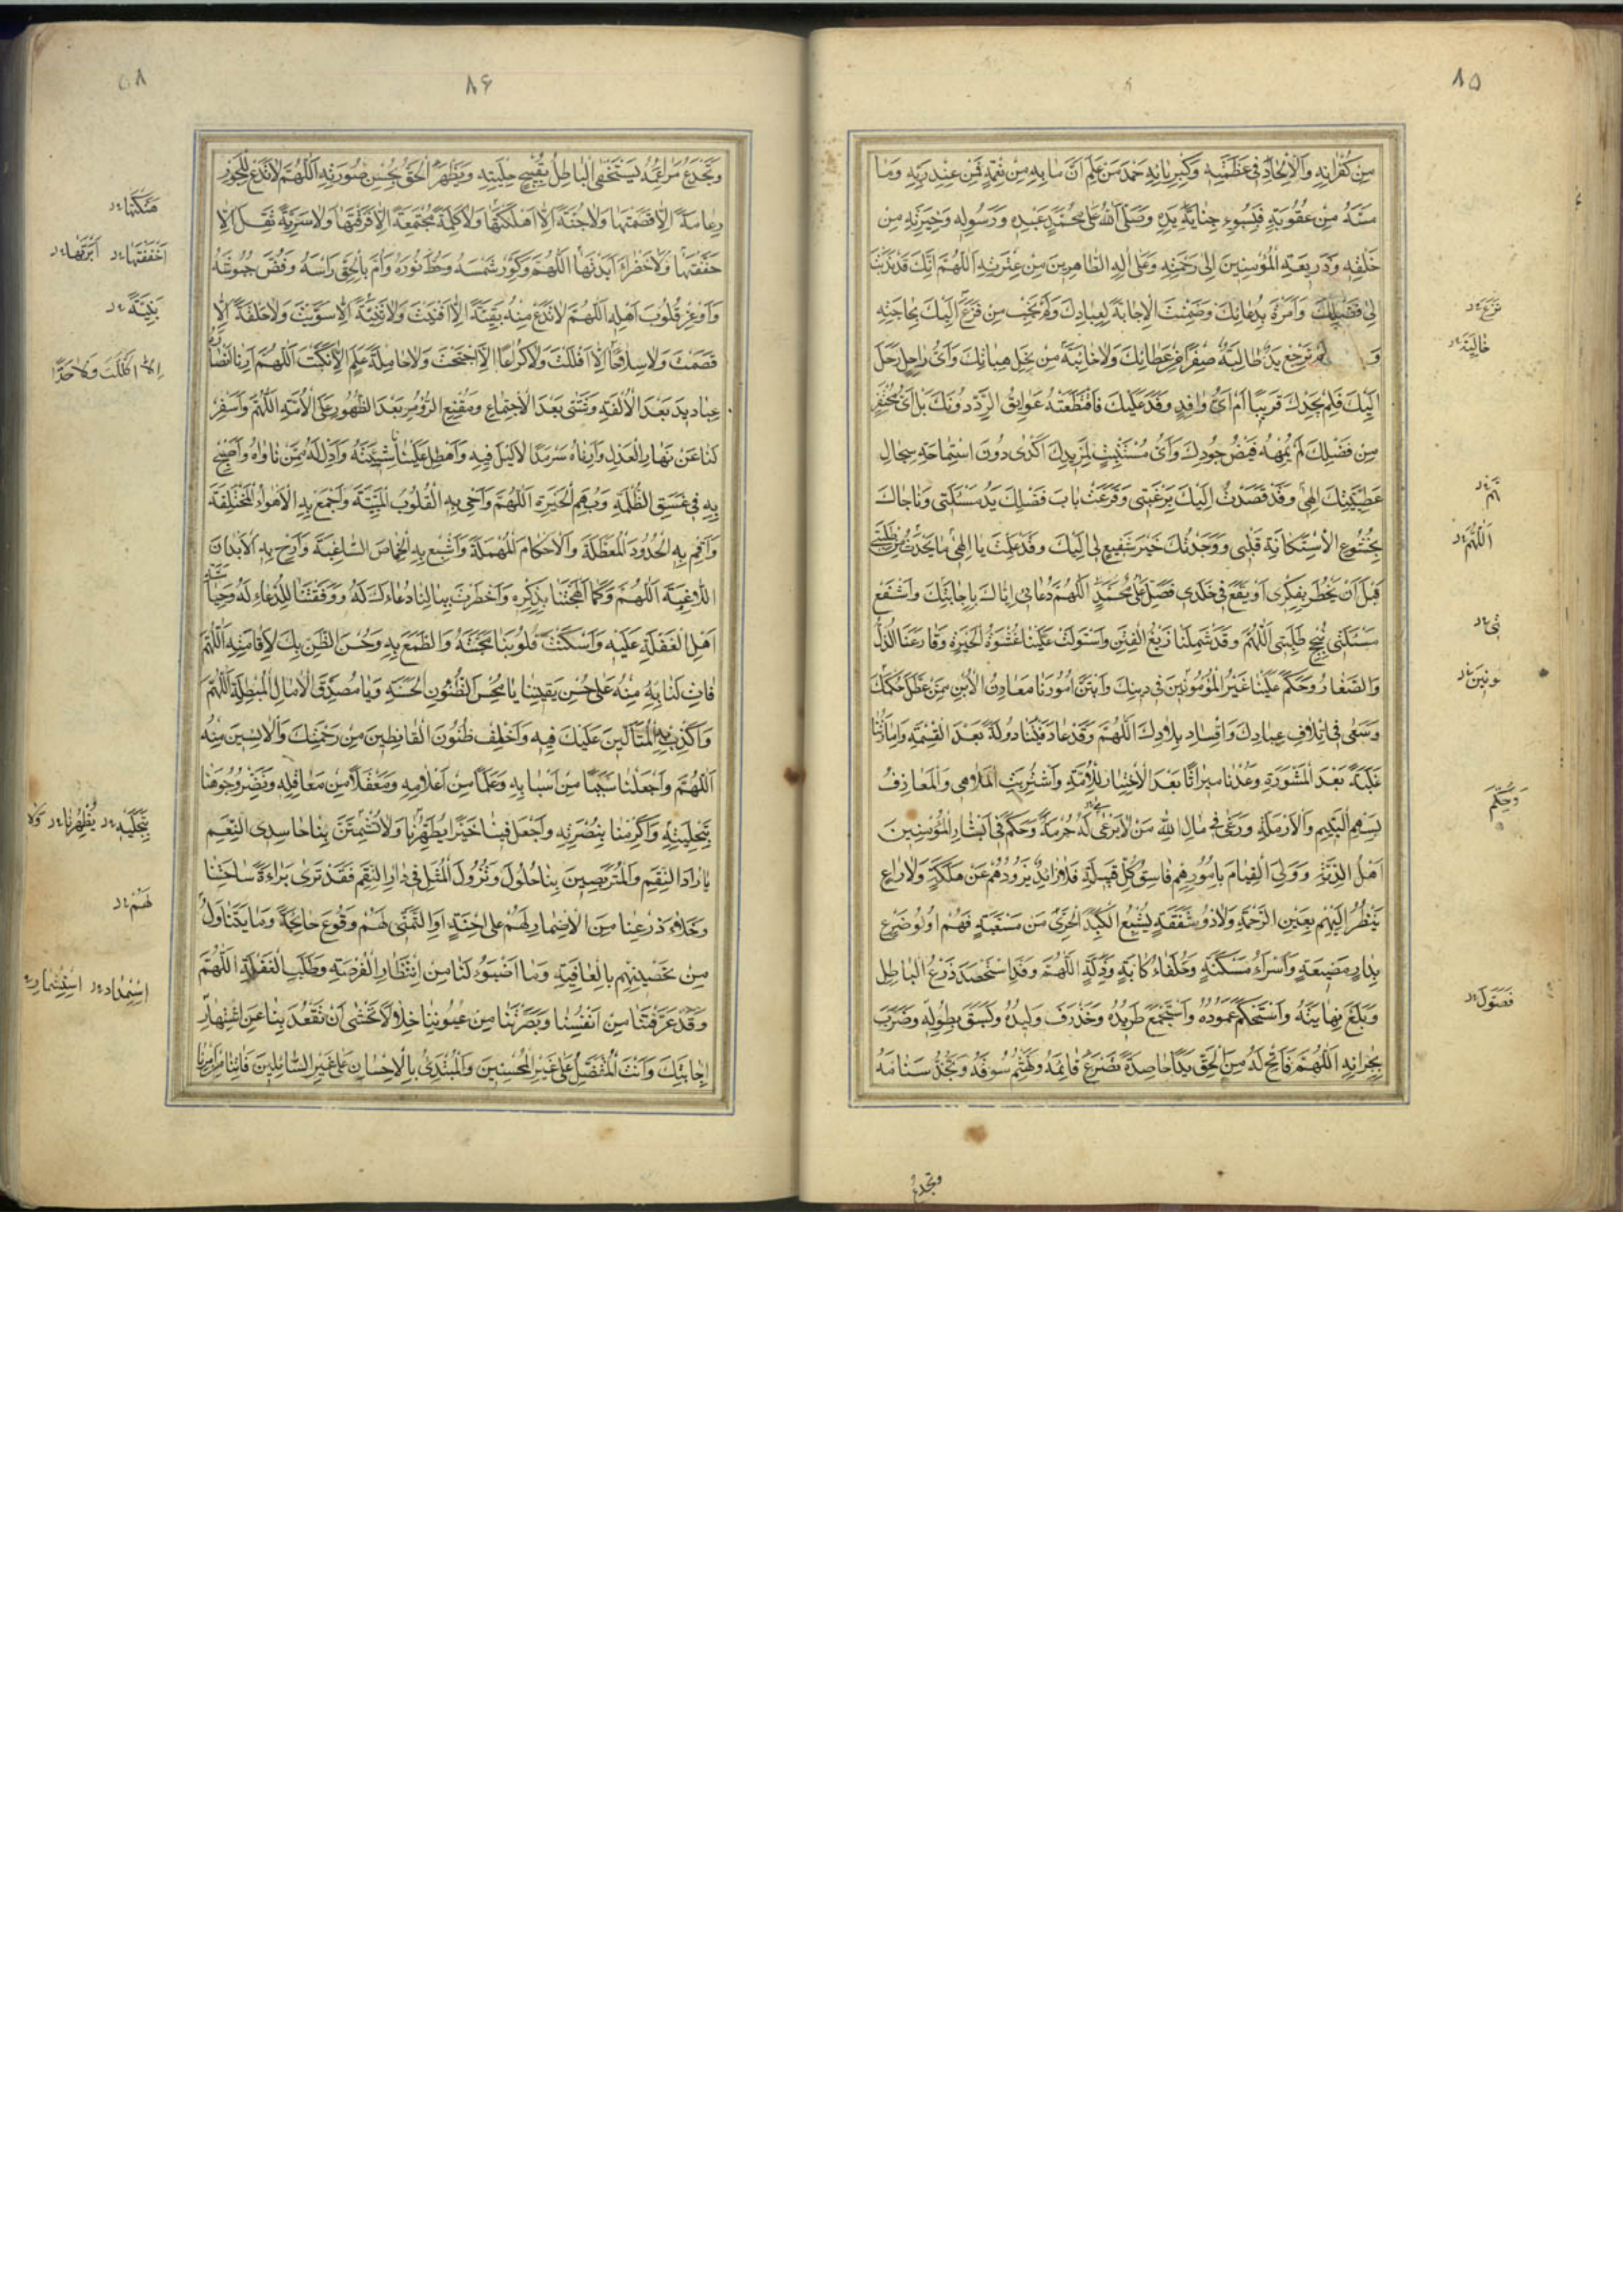 ٨٥
مِنْ كُفْرَانِهِ وَالْاِلْحَادِ فِي عَظَمَتِهِ وَكِبْرِيَائِهِ حَمْدَ مَنْ عَلِمَ اَنَّ مَا بِهِ مِنْ نِعْمَةٍ فَمِنْ عِنْدِ رَبِّهِ وَمَا
مَسَّهُ مِنْ عُقُوبَةٍ فَبِسُوءِ جِنَايَةِ يَدِهِ وَصَلَّى اللّٰهُ عَلٰى مُحَمَّدٍ عَبْدِهِ وَرَسُولِهِ وَخِيَرَتِهِ مِنْ
خَلْقِهِ وَذَرِيعَةِ الْمُؤْمِنِينَ اِلٰى رَحْمَتِهِ وَعَلٰى اٰلِهِ الطَّاهِرِينَ مِنْ عِتْرَتِهِ اَللّٰهُمَّ اِنَّكَ قَدْ نَدَبْتَنَا
اِلٰى فَضْلِكَ وَاَمَرْتَ بِدُعَائِكَ وَضَمِنْتَ الْاِجَابَةَ لِعِبَادِكَ وَلَمْ يَخِبْ مَنْ فَزِعَ اِلَيْكَ بِحَاجَتِهِ
وَ لَمْ تَرْجِعْ يَدٌ طَالِبَةٌ صِفْرًا مِنْ عَطَائِكَ وَلَا خَائِبَةً مِنْ نِحَلِ هِبَاتِكَ وَاَيُّ رَاحِلٍ رَحَلَ
اِلَيْكَ فَلَمْ يَجِدْكَ قَرِيبًا اَمْ اَيُّ وَافِدٍ وَفَدَ عَلَيْكَ فَاقْتَطَعَتْهُ عَوَائِقُ الرَّدِّ دُونَكَ بَلْ اَيُّ مُحْتَفِرٍ
مِنْ فَضْلِكَ لَمْ يُمْهِهِ فَيْضُ جُودِكَ وَاَيُّ مُسْتَنْبِطٍ لِمَزِيدِكَ اَكْدٰى دُونَ اسْتِمَاحَةِ سِجَالِ
عَطِيَّتِكَ اِلٰهِي وَقَدْ قَصَدْتُ اِلَيْكَ بِرَغْبَتِي وَقَرَعَتْ بَابَ فَضْلِكَ يَدُ مَسْئَلَتِي وَنَاجَاكَ
بِخُشُوعِ الْاِسْتِكَانَةِ قَلْبِي وَوَجَدْتُكَ خَيْرَ شَفِيعٍ لِي اِلَيْكَ وَقَدْ عَلِمْتَ يَا اِلٰهِي مَا يَحْدُثُ مِنْ طَلِبَتِي
قَبْلَ اَنْ يَخْطُرَ بِفِكْرِي اَوْ يَقَعَ فِي خَلَدِي فَصَلِّ عَلٰى مُحَمَّدٍ اَللّٰهُمَّ دُعَائِي اِيَّاكَ بِاِجَابَتِكَ وَاشْفَعْ
مَسْئَلَتِي بِنُجْحِ طَلِبَتِي اَللّٰهُمَّ وَقَدْ شَمِلَنَا زَيْغُ الْفِتَنِ وَاسْتَوْلَتْ عَلَيْنَا غَشْوَةُ الْحَيْرَةِ وَقَارَعَنَا الذُّلُّ
وَالصَّغَارُ وَحَكَمَ عَلَيْنَا غَيْرُ الْمَأْمُونِينَ فِي دِينِكَ وَابْتَزَّ اُمُورَنَا مَعَادِنُ الْاُبَنِ مِمَّنْ عَطَّلَ حُكْمَكَ
وَسَعٰى فِي اِتْلَافِ عِبَادِكَ وَاِفْسَادِ بِلَادِكَ اَللّٰهُمَّ وَقَدْ عَادَ فَيْئُنَا دُولَةً بَعْدَ الْقِسْمَةِ وَاِمَارَتُنَا
غَلَبَةً بَعْدَ الْمَشْوَرَةِ وَعُدْنَا مِيرَاثًا بَعْدَ الْاِخْتِيَارِ لِلْاُمَّةِ وَاشْتُرِيَتِ الْمَلَاهِي وَالْمَعَازِفُ
بِسَهْمِ الْيَتِيمِ وَالْاَرْمَلَةِ وَرَعٰى فِي مَالِ اللّٰهِ مَنْ لَا يَرْعٰى لَهُ حُرْمَةً وَحَكَمَ فِي اَبْشَارِ الْمُؤْمِنِينَ
اَهْلُ الذِّمَّةِ وَوَلِيَ الْقِيَامَ بِاُمُورِهِمْ فَاسِقُ كُلِّ قَبِيلَةٍ فَلَا ذَائِدٌ يَذُودُهُمْ عَنْ هَلَكَةٍ وَلَا رَاعٍ
يَنْظُرُ اِلَيْهِمْ بِعَيْنِ الرَّحْمَةِ وَلَا ذُو شَفَقَةٍ يُشْبِعُ الْكَبِدَ الْحَرّٰى مِنْ مَسْغَبَةٍ فَهُمْ اُولُو ضَرَعٍ
بِدَارِ مَضِيعَةٍ وَاُسَرَاءُ مَسْكَنَةٍ وَحُلَفَاءُ كَابَةٍ وَذِلَّةٍ اَللّٰهُمَّ وَقَدِ اسْتَحْصَدَ زَرْعُ الْبَاطِلِ
وَبَلَغَ نِهَايَتَهُ وَاسْتَحْكَمَ عَمُودُهُ وَاسْتَجْمَعَ طَرِيدُهُ وَخَذْرَفَ وَلِيدُهُ وَبَسَقَ بِطُولِهِ وَضَرَبَ
بِجِرَانِهِ اَللّٰهُمَّ فَاَتِحْ لَهُ مِنَ الْحَقِّ يَدًا حَاصِدَةً تَصْرَعُ قَائِمَهُ وَتَهْشِمُ سُوقَهُ وَتَجُذُّ سَنَامَهُ
اَللّٰهُمَّ
وَحَكَمَ
وتجدع
٨۶
وَتَجْدَعُ مَرَاغِمَهُ لِيَسْتَخْفِيَ الْبَاطِلُ بِقُبْحِ حِلْيَتِهِ وَيَظْهَرَ الْحَقُّ بِحُسْنِ صُورَتِهِ اَللّٰهُمَّ لَا تَدَعْ لِلْجَوْرِ
دِعَامَةً اِلَّا قَصَمْتَهَا وَلَا جُنَّةً اِلَّا هَتَكْتَهَا وَلَا كَلِمَةً مُجْتَمِعَةً اِلَّا فَرَّقْتَهَا وَلَا سَرِيَّةَ ثِقْلٍ اِلَّا
خَفَّفْتَهَا وَلَا خَضْرَاءَ اِلَّا اَبَدْتَهَا اَللّٰهُمَّ وَكَوِّرْ شَمْسَهُ وَحُطَّ نُورَهُ وَاُمَّ بِالْحَقِّ رَاْسَهُ وَفُضَّ جُيُوشَهُ
وَاَوْعِرْ قُلُوبَ اَهْلِهِ اَللّٰهُمَّ لَا تَدَعْ مِنْهُ بَقِيَّةً اِلَّا اَفْنَيْتَ وَلَا بَنِيَّةً اِلَّا سَوَّيْتَ وَلَا حَلْقَةً اِلَّا
قَصَمْتَ وَلَا سِلَاحًا اِلَّا اَفْلَلْتَ وَلَا كُرَاعًا اِلَّا اجْتَحْتَ وَلَا حَامِلَةَ عَلَمٍ اِلَّا نَكَّسْتَ اَللّٰهُمَّ اَرِنَا اَنْصَارَهُ
عَبَادِيدَ بَعْدَ الْاُلْفَةِ وَشَتّٰى بَعْدَ الْاِجْتِمَاعِ وَمُقْنِعِي الرُّؤُسِ بَعْدَ الظُّهُورِ عَلَى الْاُمَّةِ اَللّٰهُمَّ وَاَسْفِرْ
لَنَا عَنْ نَهَارِ الْعَدْلِ وَاَرِنَاهُ سَرْمَدًا لَا لَيْلَ فِيهِ وَاَهْطِلْ عَلَيْنَا نَاشِئَتَهُ وَاَدِلْ لَهُ مِمَّنْ نَاوَاهُ وَاَصْبِحْ
بِهِ فِي غَسَقِ الظُّلْمَةِ وَبُهَمِ الْحَيْرَةِ اَللّٰهُمَّ وَاَحْيِ بِهِ الْقُلُوبَ الْمَيِّتَةَ وَاجْمَعْ بِهِ الْاَهْوَاءَ الْمُخْتَلِفَةَ
وَاَقِمْ بِهِ الْحُدُودَ الْمُعَطَّلَةَ وَالْاَحْكَامَ الْمُهْمَلَةَ وَاَشْبِعْ بِهِ الْخِمَاصَ السَّاغِبَةَ وَاَرِحْ بِهِ الْاَبْدَانَ
اللَّاغِبَةَ اَللّٰهُمَّ وَكَمَا اَلْهَجْتَنَا بِذِكْرِهِ وَاَخْطَرْتَ بِبَالِنَا دُعَاءَكَ لَهُ وَوَفَّقْتَنَا لِلدُّعَاءِ لَهُ وَحِيَاشَةِ
اَهْلِ الْغَفْلَةِ عَلَيْهِ وَاَسْكَنْتَ قُلُوبَنَا مَحَبَّتَهُ وَالطَّمَعَ بِهِ وَحُسْنَ الظَّنِّ بِكَ لِاِقَامَتِهِ اَللّٰهُمَّ
فَاٰتِ لَنَا بِهِ مِنْهُ عَلٰى حُسْنِ يَقِينِنَا يَا مُحْسِنَ الظُّنُونِ الْحَسَنَةِ وَيَا مُصَدِّقَ الْاٰمَالِ الْمُبْطِئَةِ اَللّٰهُمَّ
وَاَكْذِبْ بِهِ الْمُتَاَلِّينَ عَلَيْكَ فِيهِ وَاَخْلِفْ ظُنُونَ الْقَانِطِينَ مِنْ رَحْمَتِكَ وَالْاٰيِسِينَ مِنْهُ
اَللّٰهُمَّ وَاجْعَلْنَا سَبَبًا مِنْ اَسْبَابِهِ وَعَلَمًا مِنْ اَعْلَامِهِ وَمَعْقِلًا مِنْ مَعَاقِلِهِ وَنَضِّرْ وُجُوهَنَا
بِتَحْلِيَتِهِ وَاَكْرِمْنَا بِنُصْرَتِهِ وَاجْعَلْ فِينَا خَيْرًا يُطَهِّرُنَا وَلَا تُشْمِتَنَّ بِنَا حَاسِدِي النِّعَمِ
يَارَادَا النِّقَمِ وَالْمُتَرَبِّصِينَ بِنَا حُلُولَ وَنُزُولَ الْمُثَلِ فِي دَارِ النِّقَمِ فَقَدْ تَرٰى بَرَاءَةَ سَاحَتِنَا
وَخَلَاءَ ذَرْعِنَا مِنَ الْاِضْمَارِ لَهُمْ عَلٰى اِحْنَةٍ اَوِ التَّمَنِّي لَهُمْ وُقُوعَ جَائِحَةٍ وَمَا يَتَنَاوَلُ
مِنْ تَحْصِينِهِمْ بِالْعَافِيَةِ وَمَا اَضْبَؤُ لَنَا مِنِ انْتِظَارِ الْفُرْصَةِ وَطَلَبِ الْغَفْلَةِ اَللّٰهُمَّ
وَقَدْ عَرَّفْتَنَا مِنْ اَنْفُسِنَا وَبَصَّرْتَنَا مِنْ عُيُوبِنَا خِلَالًا نَخْشٰى اَنْ تَقْعُدَ بِنَا عَنِ اشْتِهَارِ
اِجَابَتِكَ وَاَنْتَ الْمُتَفَضِّلُ عَلٰى غَيْرِ الْمُحْسِنِينَ وَالْمُبْتَدِئُ بِالْاِحْسَانِ عَلٰى غَيْرِ السَّائِلِينَ فَاٰتِنَا مِنْ اَمْرِنَا